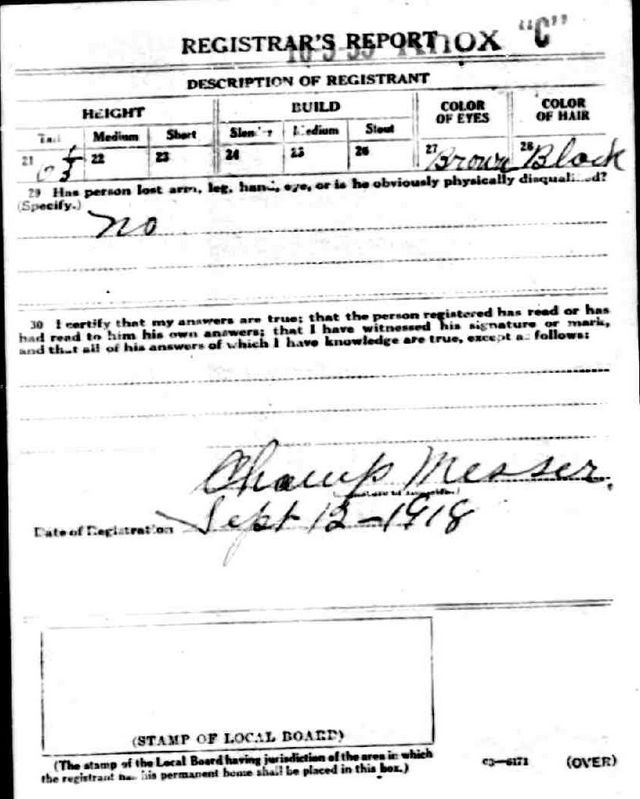 REGISTRAR'S REPORT KNOX "C"
DESCRIPTION OF REGISTRANT
HEIGHT BUILD COLOR OF EYES COLOR OF HAIR
Tall Medium Short Slender Medium Stout
21 22 23 24 25 26 27 Brown 28 Black
29 Has person lost arm, leg, hand, eye, or is he obviously physically disqualified?
(Specify.)
no
30 I certify that my answers are true; that the person registered has read or has
had read to him his own answers; that I have witnessed his signature or mark,
and that all of his answers of which I have knowledge are true, except as follows:
Champ Messer
Date of Registration Sept 12-1918
(STAMP OF LOCAL BOARD)
(The stamp of the Local Board having jurisdiction of the area in which
the registrant has his permanent home shall be placed in this box.)
03—6171 (OVER)